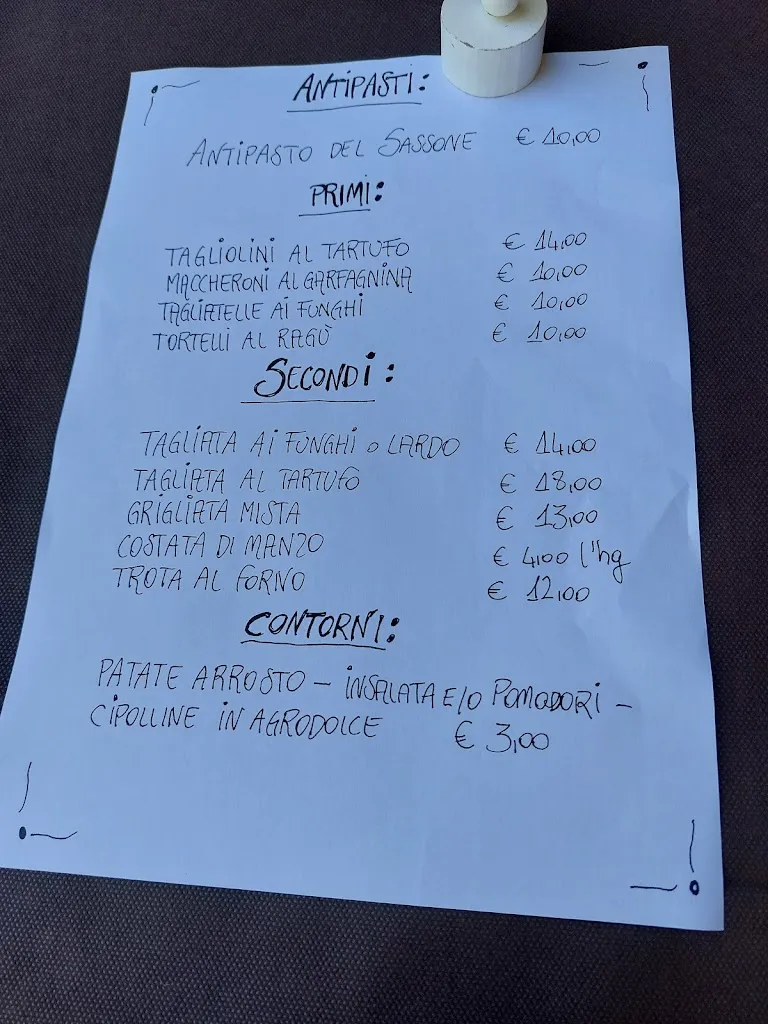 ANTIPASTI:
ANTIPASTO DEL SASSONE € 10,00
PRIMI:
TAGLIOLINI AL TARTUFO € 14,00
MACCHERONI AL GARFAGNINA € 10,00
TAGLIATELLE AI FUNGHI € 10,00
TORTELLI AL RAGÙ € 10,00
SECONDI:
TAGLIATA AI FUNGHI O LARDO € 14,00
TAGLIATA AL TARTUFO € 18,00
GRIGLIATA MISTA € 13,00
COSTATA DI MANZO € 4,00 l'hg
TROTA AL FORNO € 12,00
CONTORNI:
PATATE ARROSTO – INSALATA E/O POMODORI –
CIPOLLINE IN AGRODOLCE € 3,00